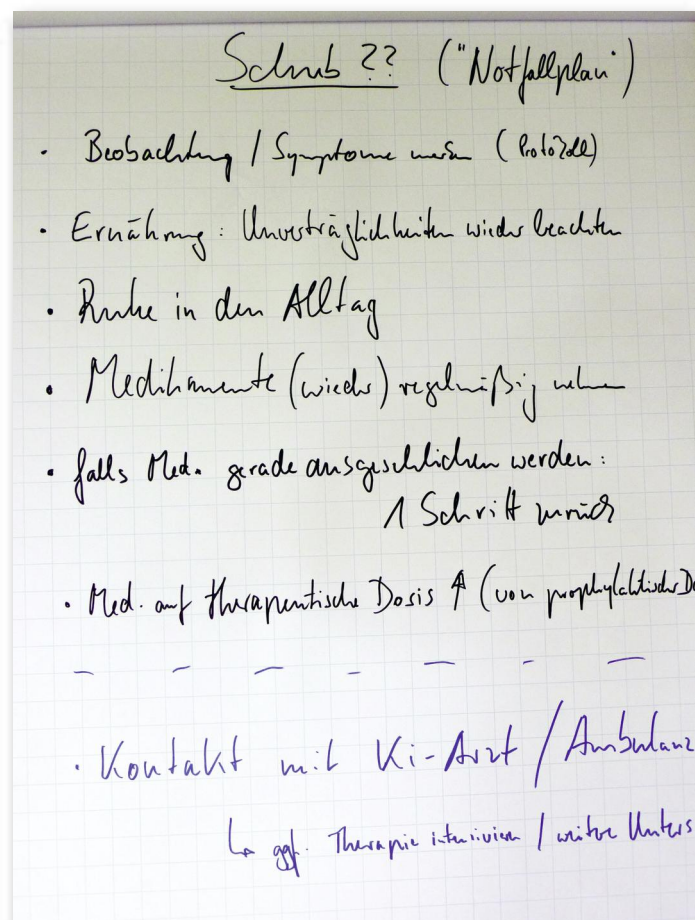 Schub ?? ("Notfallplan")
· Beobachtung / Symptome (Protokoll)
· Ernährung: Unverträglichkeiten wieder beachten
· Ruhe in den Alltag
· Medikamente (wieder) regelmäßig nehmen
· falls Med. gerade ausgeschlichen werden:
1 Schritt zurück
· Med. auf therapeutische Dosis ↑ (von prophylaktischer Do
· Kontakt mit Ki-Arzt / Ambulanz
↳ ggf. Therapie intensivieren / weitere Unters